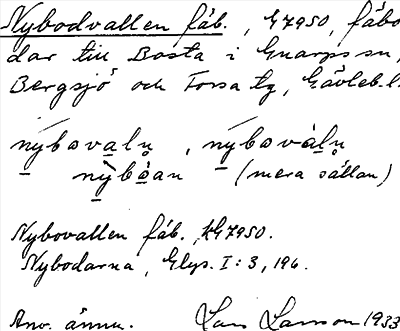 Nybodvallen fäb., G7950, fäbo
dar till Bosta i Gnarps sn,
Bergsjö och Forsa tg, Gävleb. l.
nybovaln̥, nybovàln̥
nỳbòan (mera sällan)
Nybovallen fäb., KG7950.
Nybodarna, Glys. I:3, 196.
Anv. ännu. Lars Larsson 1933